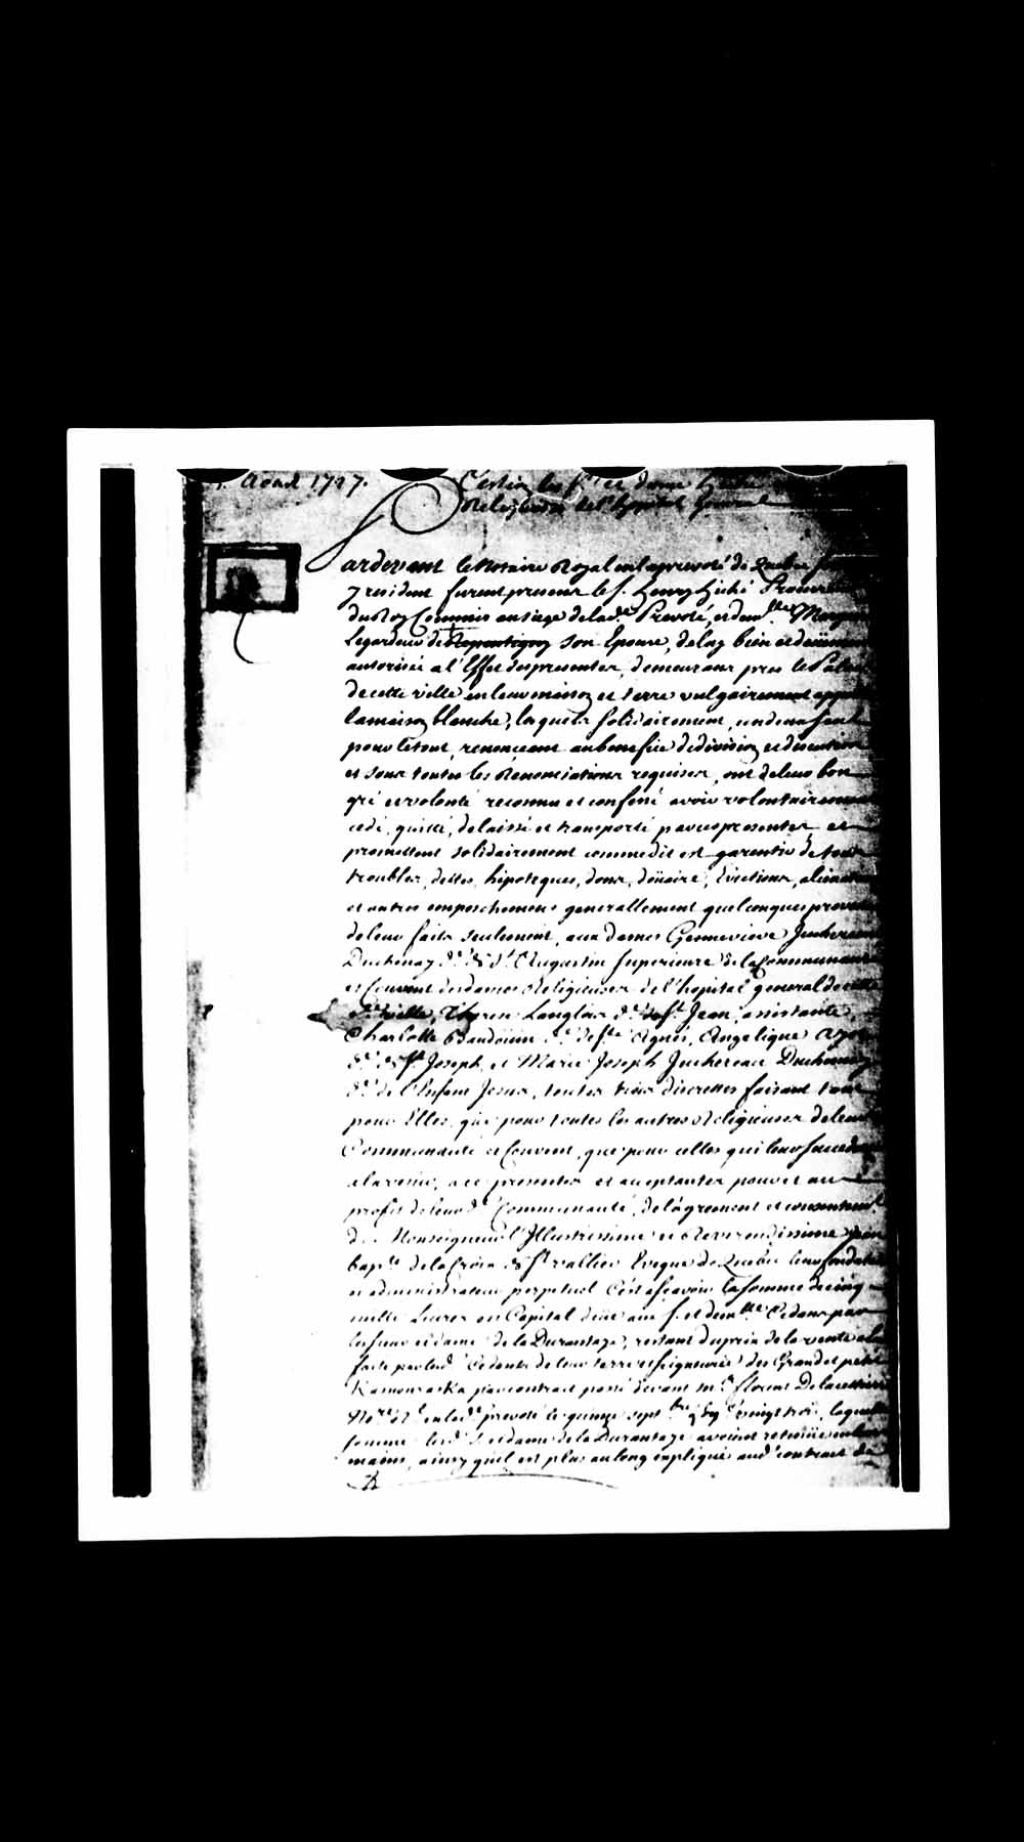 Aoust 1727.
Cession les Srs et dame hiché
Religieuses de l'hopital General
Pardevant le Notaire Royal en la prevoté de Quebec
y resident furent presens le S. henry hiché Procureur
du Roy Commis au siege de lad.e Prevoté, et dem.lle
Legardeur de Repentigny son Epouse, de luy bien et deüement
autorisée a l'Effet des presentes, demeurans pres le Palais
de cette ville en leur maison et terre vulgairement appellé
la maison blanche, lesquels solidairement, un d'eux seul
pour le tout, renonceant au benefice de division et discution
et sous toutes les Renonciations requises, ont de leur bon
gré et volonté reconnu et confessé avoir volontairement
cedé, quitté, delaissé et transporté par ces presentes et
promettent solidairement comme dit est garentir de tous
troubles, dettes, hipoteques, dons, doüaire, Evictions, alienations
et autres empeschemens generallement quelconques provenant
de leur faits seulement, aux dames Genneviere Juchereau
Duchenay d.e de St. Augustin superieure de la Communauté
et Couvent des dames Religieuses de l'hopital general de cette
ville, Langlois d.e de St. Jean, assistante,
Charlotte Baudoüin d.e de Ste Agnés, Angelique
d.e de St Joseph, et Marie Joseph Juchereau Duchenay
d.e de l'Enfant Jesus, toutes trois discrettes faisant tant
pour Elles, que pour toutes les autres Religieuses de leur
Communauté et Couvent, que pour celles qui leur succederont
a l'avenir, a ce presentes et acceptantes pour et au
profit de leurd.e Communauté, de l'agrement et consentement
de Monseigneur l'Illustrissime et Reverendissime Jean
bap.te de la Croix de St vallier Eveque de Quebec leur fondateur
et administrateur perpetuel C'est ascavoir la somme de cinq
mille Livres en Capital düe aux S. et dem.lle Cedans par
les sieur et dame de la Durantaye, restant du prix de la vente
faite par lesd. Cedants de leur terre et seigneurie des Grand et petit
Kamouraska par contract passé devant M.e florent Delacettiere
No.re R.l en lad.e prevoté le quinze sept.bre vingt trois, laquelle
somme lesd. S. et dame de la Durantaye avoient retenüe en leurs
mains, ainsy quil est plus au long expliqué aud. contract de